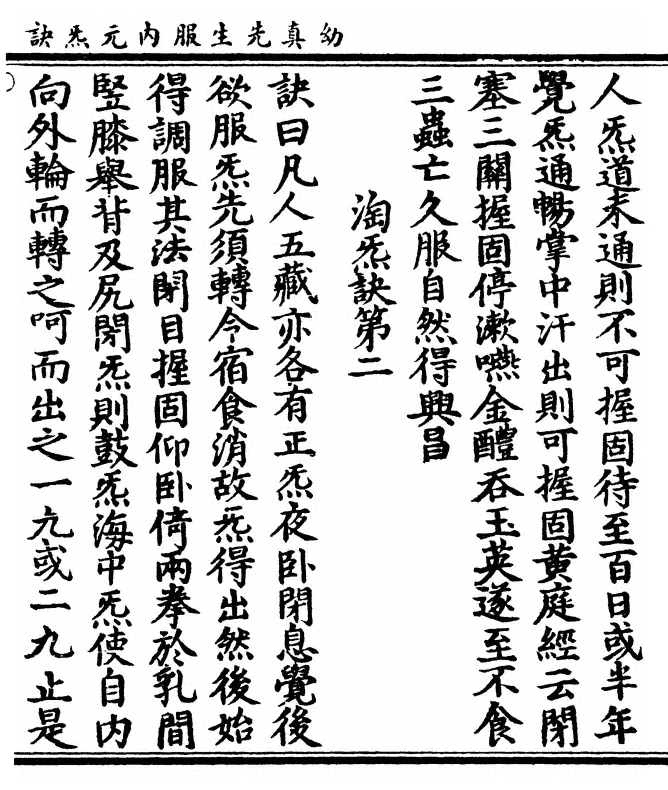 幼真先生服内元炁訣
人炁道未通則不可握固待至百日或半年
覺炁通暢掌中汗出則可握固黄庭經云閉
塞三關握固停漱嚥金醴吞玉英遂至不食
三蟲亡久服自然得興昌
淘炁訣第二
訣曰凡人五藏亦各有正炁夜卧閉息覺後
欲服炁先須轉令宿食消故炁得出然後始
得調服其法閉目握固仰卧倚兩拳於乳間
竪膝舉背及尻閉炁則鼓炁海中炁使自内
向外輪而轉之呵而出之一九或二九止是